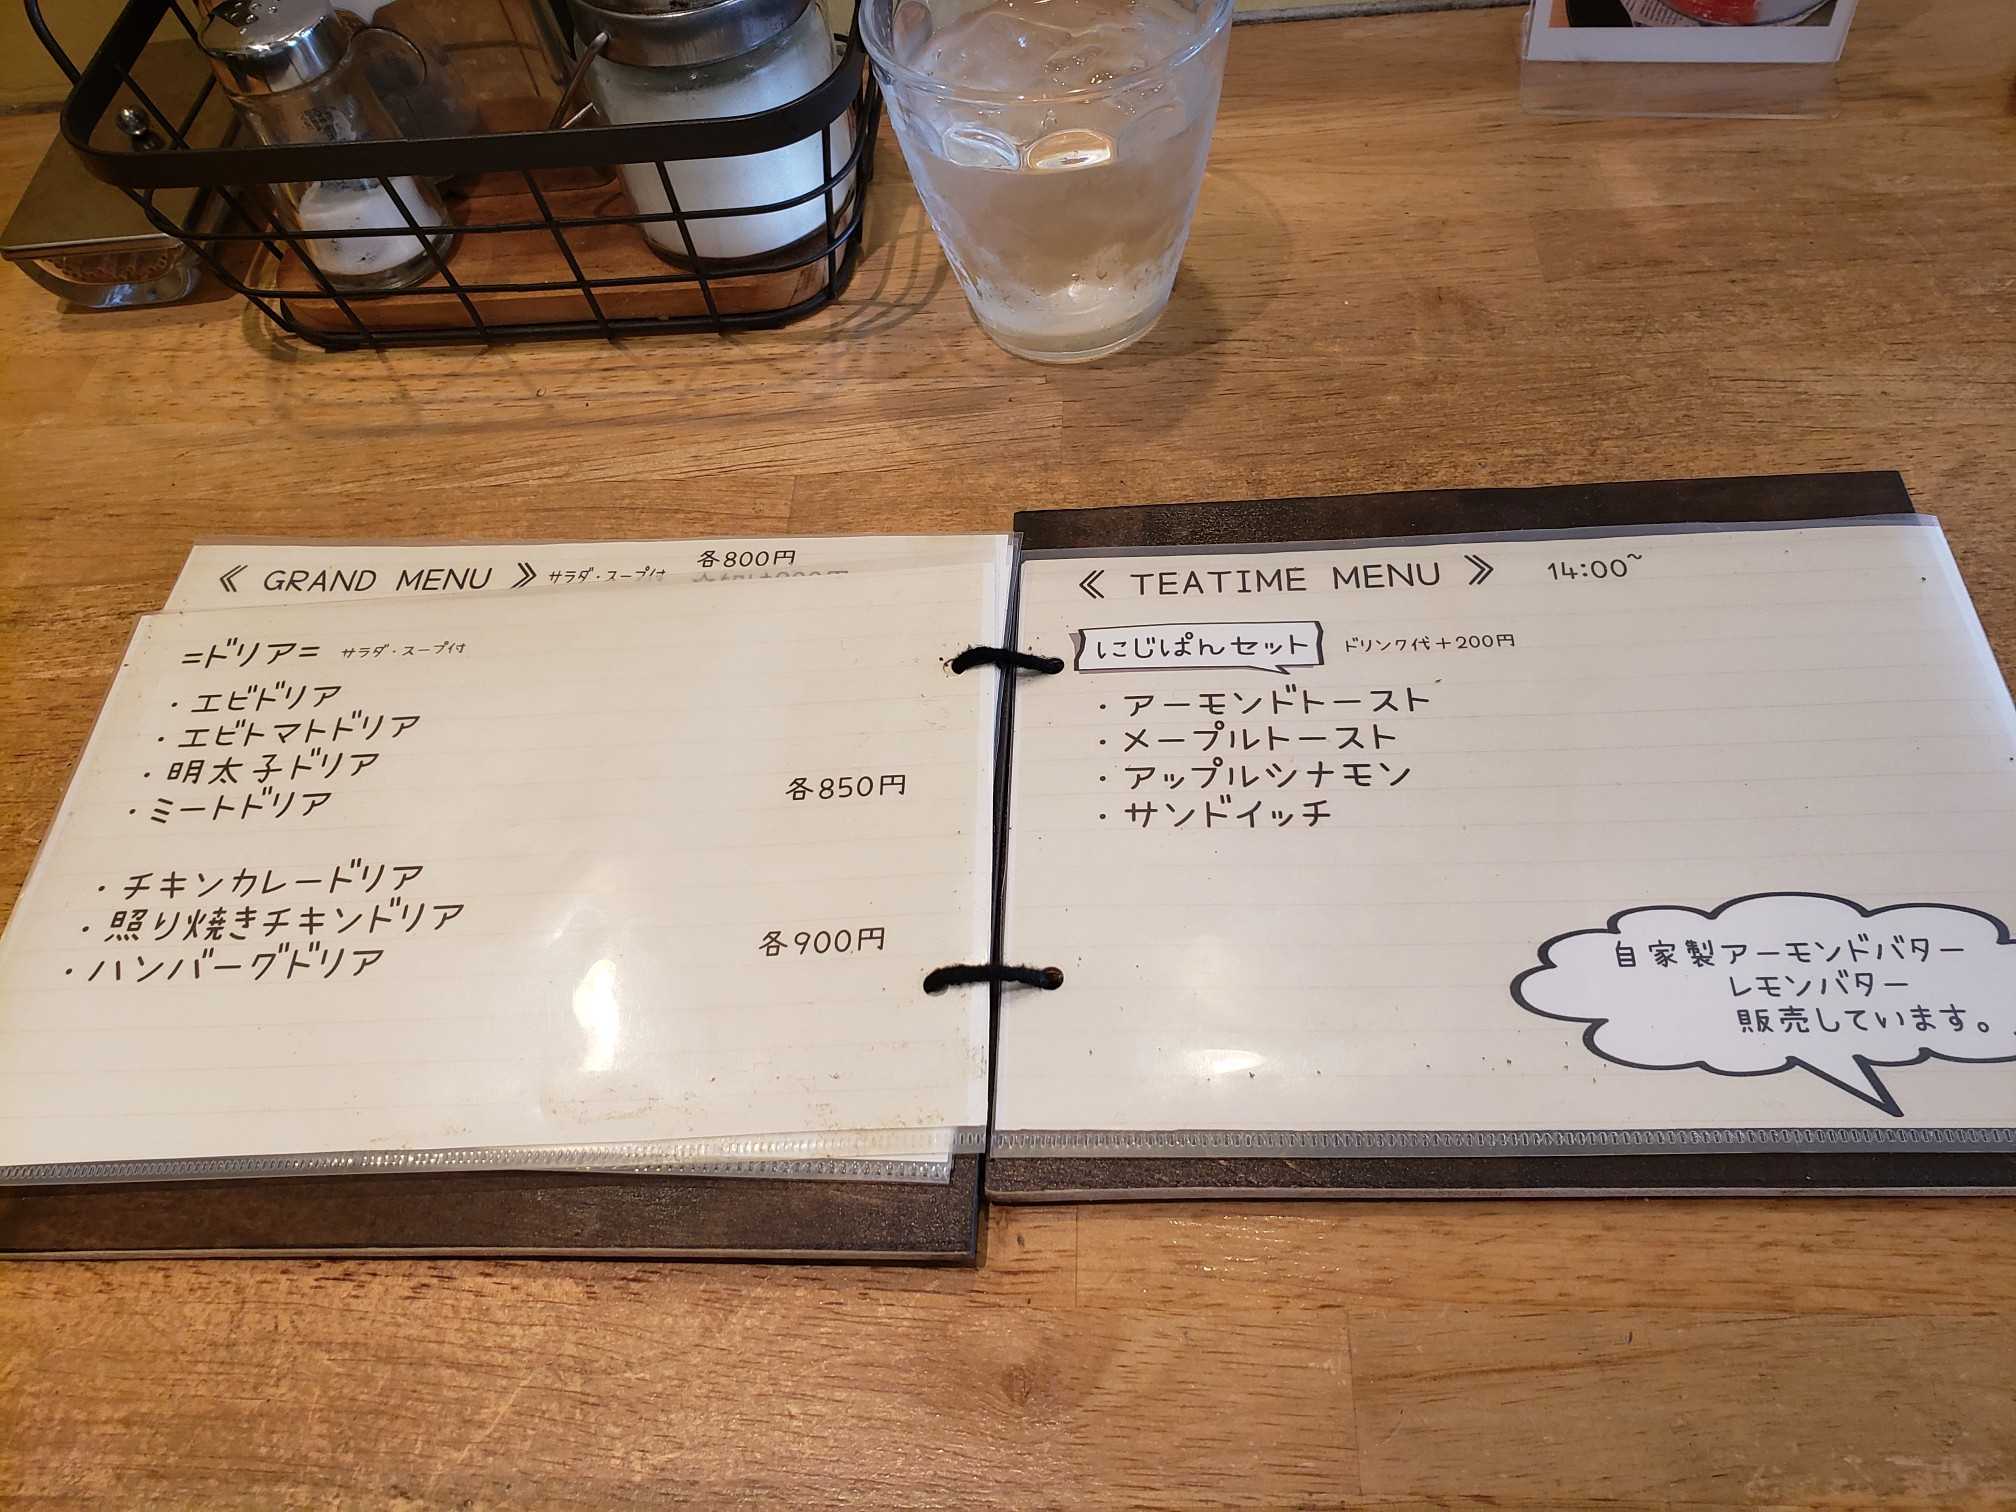 《 GRAND MENU 》 サラダ・スープ付 各800円
=ドリア= サラダ・スープ付
・エビドリア
・エビトマトドリア
・明太子ドリア
・ミートドリア
各850円
・チキンカレードリア
・照り焼きチキンドリア
・ハンバーグドリア
各900円
《 TEATIME MENU 》 14:00~
にじぱんセット ドリンク代+200円
・アーモンドトースト
・メープルトースト
・アップルシナモン
・サンドイッチ
自家製アーモンドバター
レモンバター
販売しています。